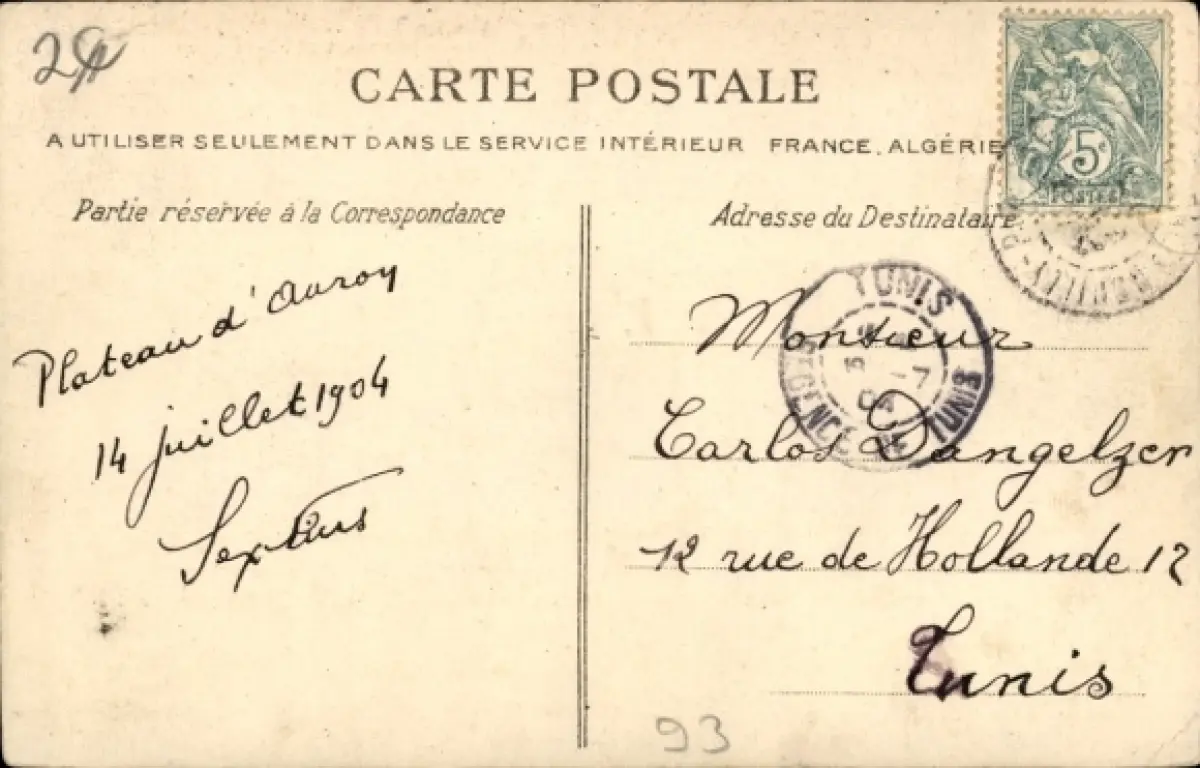 CARTE POSTALE
A UTILISER SEULEMENT DANS LE SERVICE INTÉRIEUR FRANCE, ALGÉRIE
5c
POSTES
Partie réservée à la Correspondance
Adresse du Destinataire
Plateau d'Auroy
14 juillet 1904
Sextius
TUNIS
-7
04
REGENCE DE TUNIS
Monsieur
Carlos Dangelzer
12 rue de Hollande 12
Tunis
93